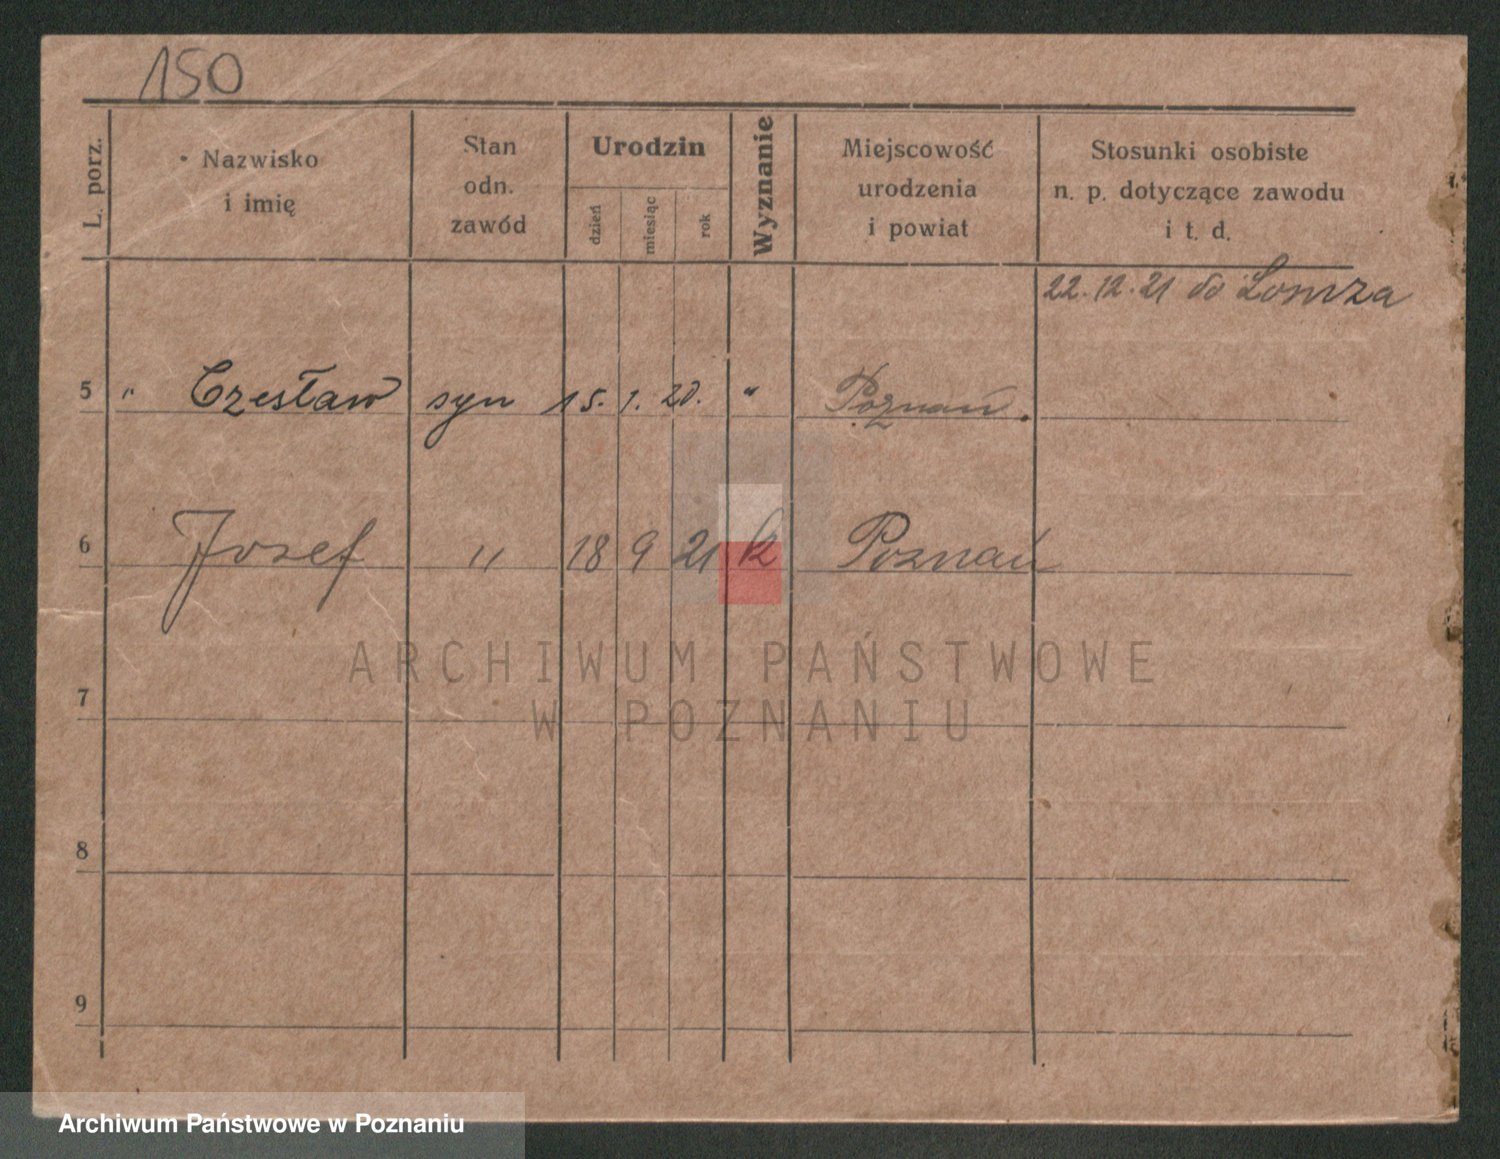 150
L. porz.
Nazwisko
i imię
Stan
odn.
zawód
Urodzin
dzień
miesiąc
rok
Wyznanie
Miejscowość
urodzenia
i powiat
Stosunki osobiste
n. p. dotyczące zawodu
i t. d.
22.12.21 do Lomza
5 " Czesław syn 15. 1. 20. " Poznań.
6 Josef " 18 9 21 k Poznań
ARCHIWUM PAŃSTWOWE
W POZNANIU
7
8
9
Archiwum Państwowe w Poznaniu